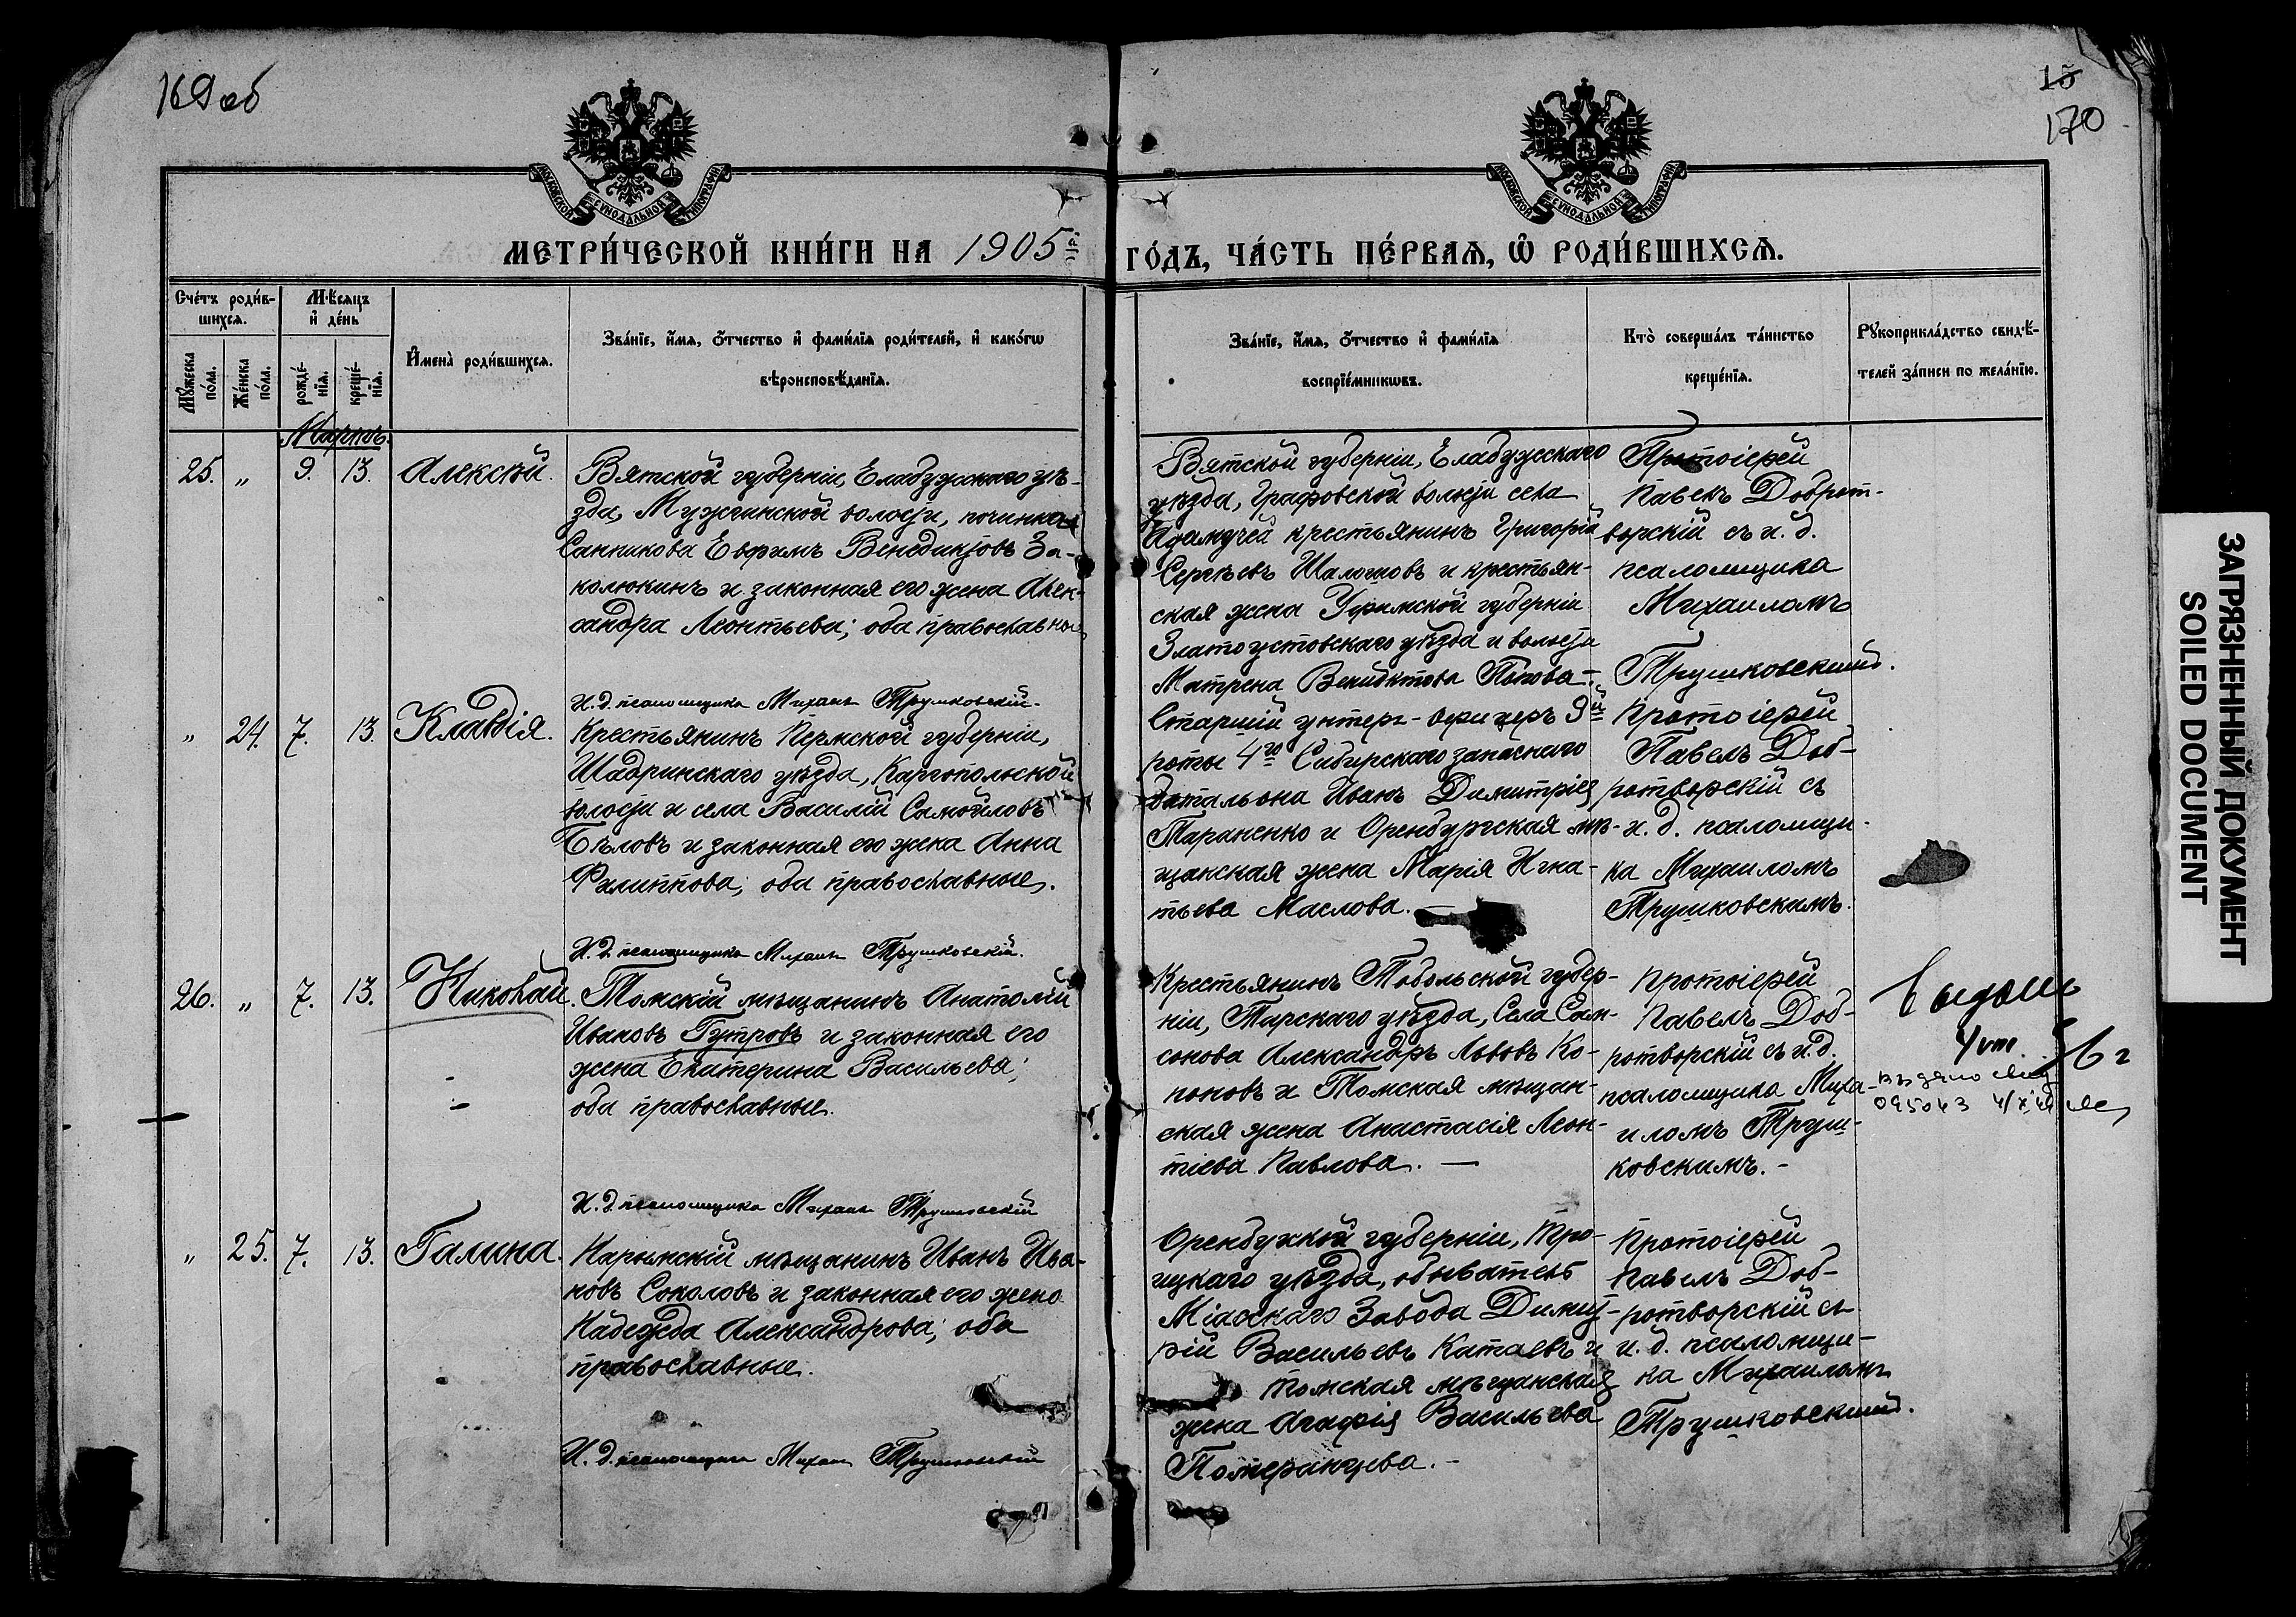 169 об
15
170
МОСКОВСКОЙ СѴНОДАЛЬНОЙ ТИПОГРАФІИ
МОСКОВСКОЙ СѴНОДАЛЬНОЙ ТИПОГРАФІИ
МЕТРИ́ЧЕСКОЙ КНИ́ГИ НА 1905й ГО́ДЪ, ЧА́СТЬ ПЕ́РВАѦ, Ѽ РОДИ́ВШИХСѦ.
Сче́тъ роди́в-
шихсѧ.
Мꙋ́жеска
по́ла.
Же́нска
по́ла.
Мѣ́сѧцъ
и҆ де́нь
рожде́-
нїѧ.
креще́-
нїѧ.
И҆мена̀ роди́вшихсѧ.
Зва́нїе, и҆́мѧ, ѻ҆́тчество и҆ фами́лїѧ роди́телей, и҆ како́гѡ
вѣроисповѣ́данїѧ.
Зва́нїе, и҆́мѧ, ѻ҆́тчество и҆ фами́лїѧ
воспрїе́мникѡвъ.
Кто̀ соверша́лъ та́инство
креще́нїѧ.
Рꙋкоприкла́дство свидѣ́-
телей за́писи по жела́нїю.
Мартъ.
25. „ 9. 13. Алексѣй.
Вятской губерніи, Елабужскаго уѣ-
зда, Мужгинской волости, починка
Санникова Евфимъ Венедиктовъ За-
колюкинъ и законная его жена Алек-
сандра Леонтьева; оба православные
И.д. псаломщика Михаилъ Трушковскій.
Вятской губерніи, Елабужскаго
уѣзда, Граховской волости села
крестьянинъ Григорій
Сергѣевъ и крестьян-
ская жена Уфимской губерніи
Златоустовскаго уѣзда и волости
Матрена Венидиктова Попова.
Протоіерей
Павелъ Доброт-
ворскій съ и.д.
псаломщика
Михаиломъ
Трушковскимъ.
„ 24. 7. 13. Клавдія.
Крестьянинъ Пермской губерніи,
Шадринскаго уѣзда, Каргопольской
волости и села Василій Самойловъ
Бѣловъ и законная его жена Анна
Филиппова; оба православные.
И.д. псаломщика Михаилъ Трушковскій.
Старшій унтеръ-офицеръ 9й
роты 4го Сибирскаго запаснаго
баталіона Иванъ Димитріев
Тараненко и Оренбургская мѣ-
щанская жена Марія Игна-
тьева Маслова.
Протоіерей
Павелъ Доб-
ротворскій съ
и.д. псаломщи-
ка Михаиломъ
Трушковскимъ.
26. „ 7. 13. Николай.
Томскій мѣщанинъ Анатолій
Ивановъ Гутровъ и законная его
жена Екатерина Васильева;
оба православные.
И.д. псаломщика Михаилъ Трушковскій
Крестьянинъ Тобольской губер-
ніи, Тарскаго уѣзда, Села Сам-
сонова Александръ Львовъ Ко-
поновъ и Томская мѣщан-
ская жена Анастасія Леон-
тіева Павлова.
Протоіерей
Павелъ Доб-
ротворскій съ и.д.
псаломщика Миха-
иломъ Труш-
ковскимъ.
36 г
095043
„ 25. 7. 13. Галина.
Нарымскій мѣщанинъ Иванъ Ива-
новъ Соколовъ и законная его жена
Надежда Александрова; оба
православные.
И.д. псаломщика Михаилъ Трушковскій
Оренбужской губерніи, Тро-
ицкаго уѣзда, обыватель
Міасскаго Завода Димит-
рій Васильевъ Катаевъ и
томская мѣщанская
жена Агафія Васильева
Померанцева.
Протоіерей
Павелъ Доб-
ротворскій съ
и.д. псаломщи-
ка Михаиломъ
Трушковскимъ.
ЗАГРЯЗНЕННЫЙ ДОКУМЕНТ
SOILED DOCUMENT